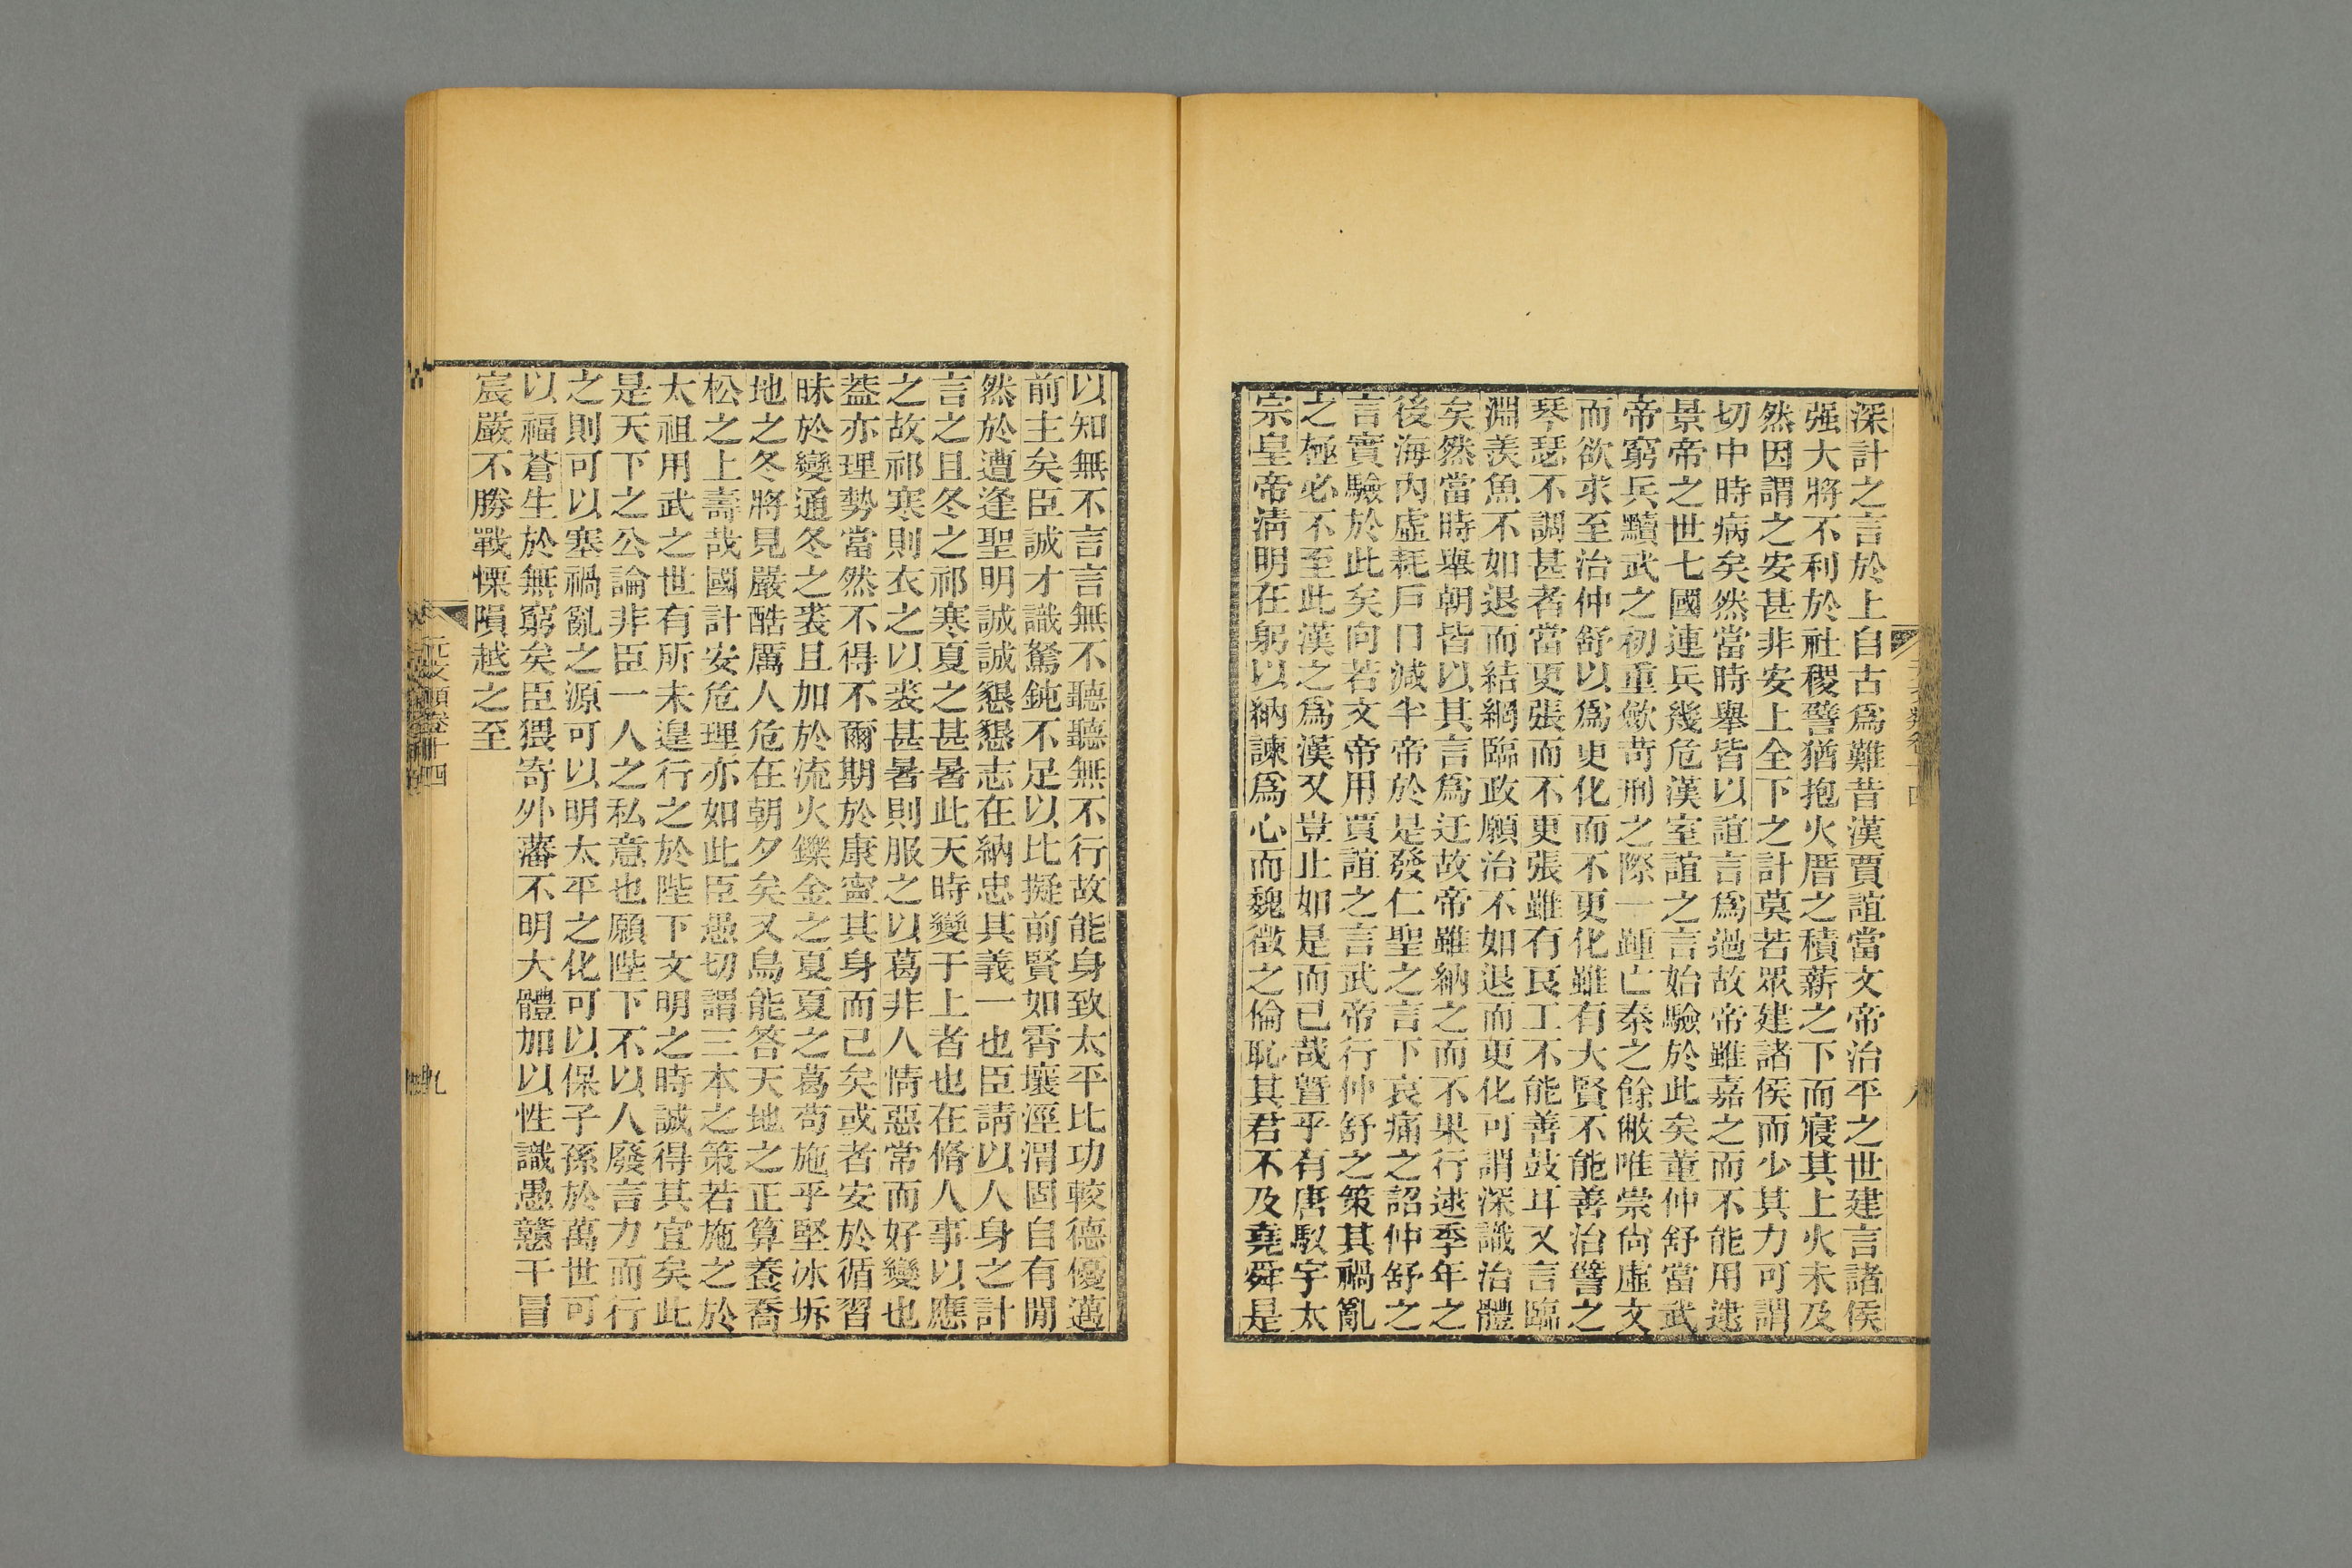 深計之言於上自古爲難昔漢賈誼當文帝治平之世建言諸侯
强大將不利於社稷譬猶抱火厝之積薪之下而寢其上火未及
然因謂之安甚非安上全下之計莫若眾建諸侯而少其力可謂
切中時病矣然當時舉皆以誼言爲過故帝雖嘉之而不能用逮
景帝之世七國連兵幾危漢室誼之言始驗於此矣董仲舒當武
帝窮兵黷武之初重斂苛刑之際一踵亡秦之餘敝唯崇尙虛文
而欲求至治仲舒以爲更化而不更化雖有大賢不能善治譬之
琴瑟不調甚者當更張而不更張雖有良工不能善鼓耳又言臨
淵羨魚不如退而結網臨政願治不如退而更化可謂深識治體
矣然當時舉朝皆以其言爲迂故帝雖納之而不果行逮季年之
後海內虛耗戸口減半帝於是發仁聖之言下哀痛之詔仲舒之
言實驗於此矣向若文帝用賈誼之言武帝行仲舒之策其禍亂
之極必不至此漢之爲漢又豈止如是而已哉曁乎有唐馭宇太
宗皇帝淸明在躬以納諫爲心而魏徵之倫恥其君不及堯舜是
八
以知無不言言無不聽聽無不行故能身致太平比功較德優邁
前主矣臣誠才識駑鈍不足以比擬前賢如霄壤涇渭固自有閒
然於遭逢聖明誠誠懇懇志在納忠其義一也臣請以人身之計
言之且冬之祁寒夏之甚暑此天時變于上者也在脩人事以應
之故祁寒則衣之以裘甚暑則服之以葛非人情惡常而好變也
葢亦理勢當然不得不爾期於康寧其身而已矣或者安於循習
昧於變通冬之裘且加於流火鑠金之夏夏之葛苟施乎堅冰坼
地之冬將見嚴酷厲人危在朝夕矣又烏能答天地之正算養喬
松之上壽哉國計安危理亦如此臣愚切謂三本之策若施之於
太祖用武之世有所未遑行之於陛下文明之時誠得其宜矣此
是天下之公論非臣一人之私意也願陛下不以人廢言力而行
之則可以塞禍亂之源可以明太平之化可以保子孫於萬世可
以福蒼生於無窮矣臣猥寄外藩不明大體加以性識愚戇干冒
宸嚴不勝戰慄隕越之至
元文類卷十四
九